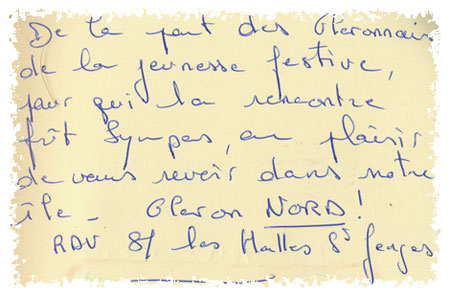 De la part des Oleronnais
de la jeunesse festive,
pour qui la rencontre
fût sympas, au plaisir
de vous revoir dans notre
île - Oleron NORD !
RDV 8/ les Halles St Georges